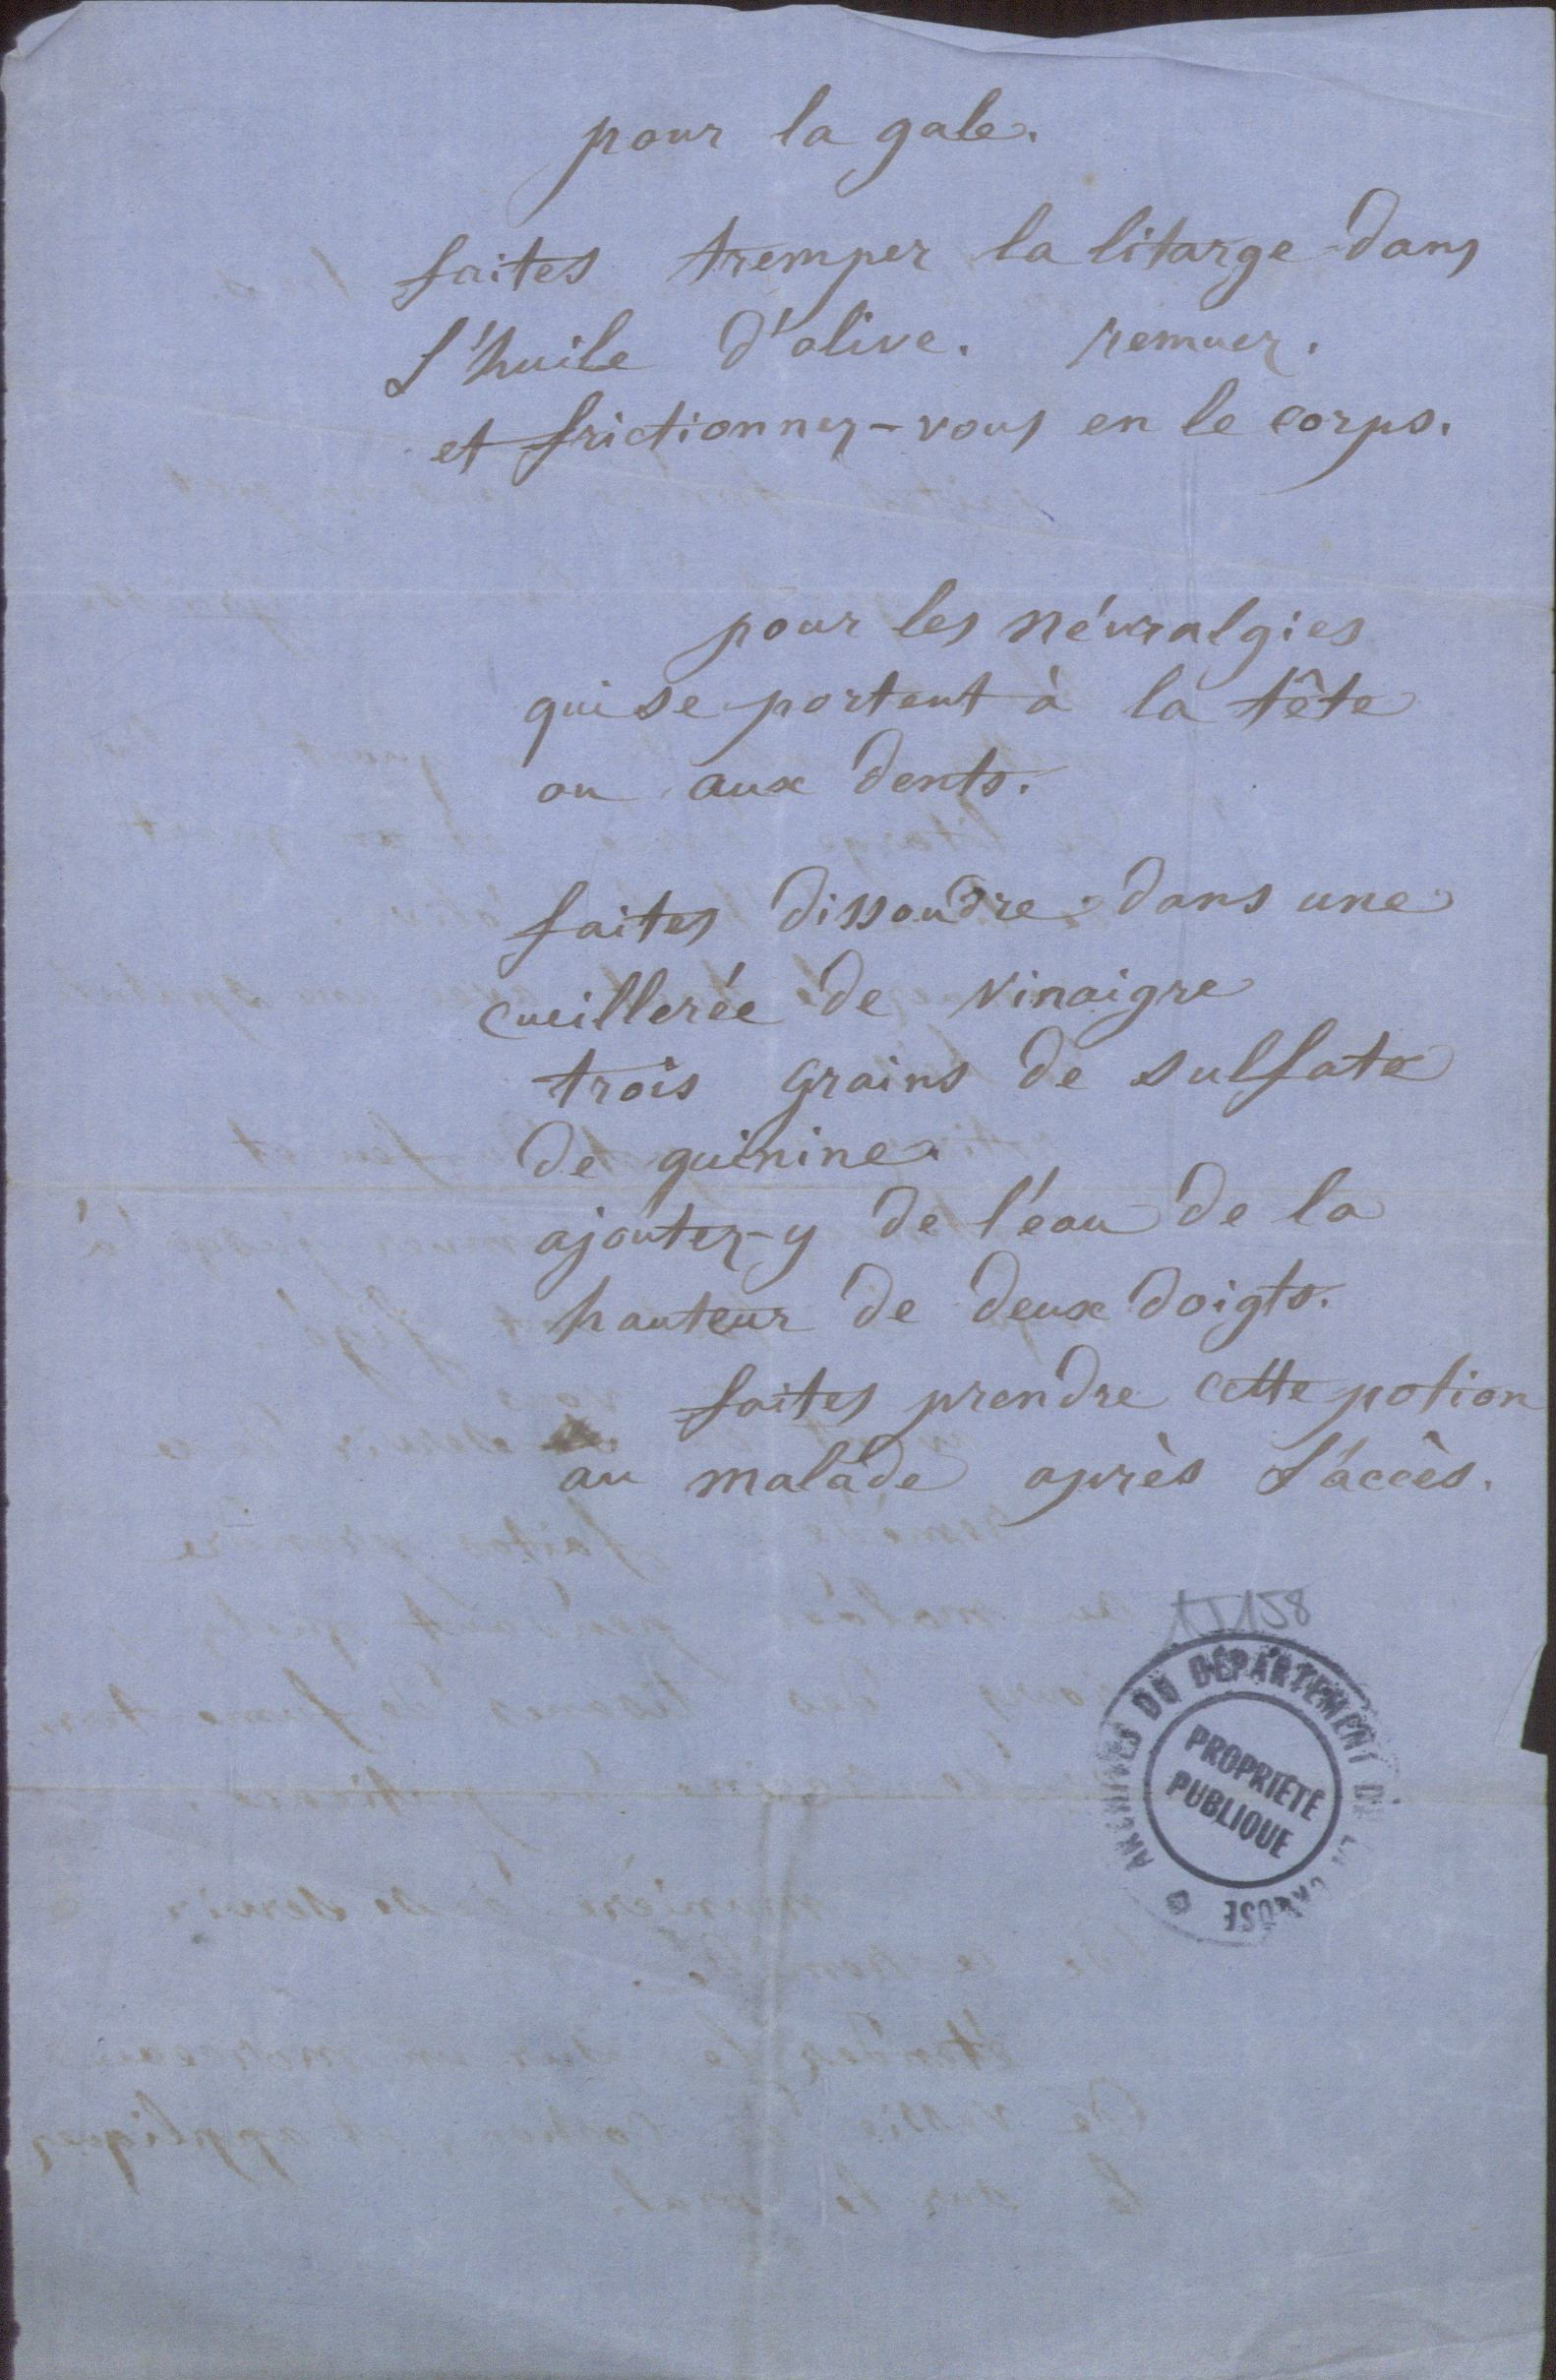 pour la gale.
faites tremper la litarge dans
l'huile d'olive. remuez.
et frictionnez-vous en le corps.
pour les névralgies
qui se portent à la tête
ou aux dents.
faites dissoudre dans une
cueillerée de vinaigre
trois grains de sulfate
de quinine.
ajoutez-y de l'eau de la
hauteur de deux doigts.
faites prendre cette potion
au malade après l'accès.
1J158
ARCHIVES DU DÉPARTEMENT DE LA CREUSE
PROPRIÉTÉ
PUBLIQUE